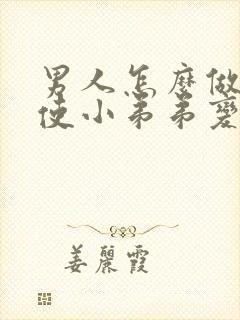 男人怎麼做
使小弟弟變
姜麗霞